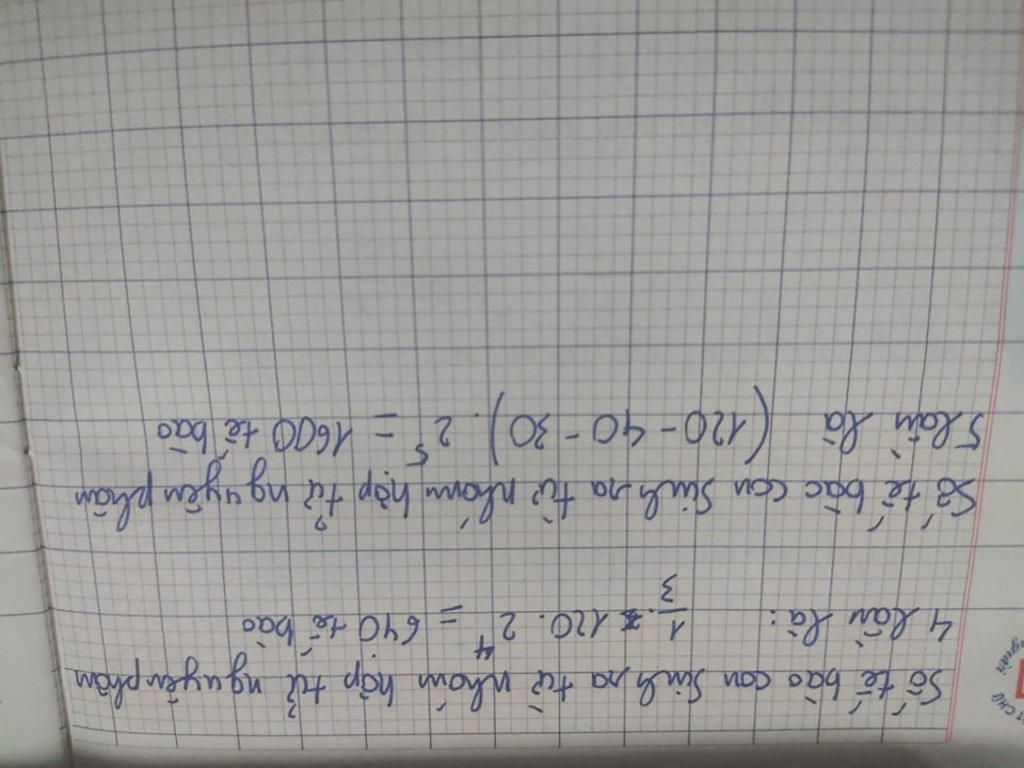 Số tế bào con sinh ra từ nhóm hợp tử nguyên phân
4 lần là: 1/3 . 120 . 2⁴ = 640 tế bào
Số tế bào con sinh ra từ nhóm hợp tử nguyên phân
5 lần là (120 - 40 - 30) . 2⁵ = 1600 tế bào